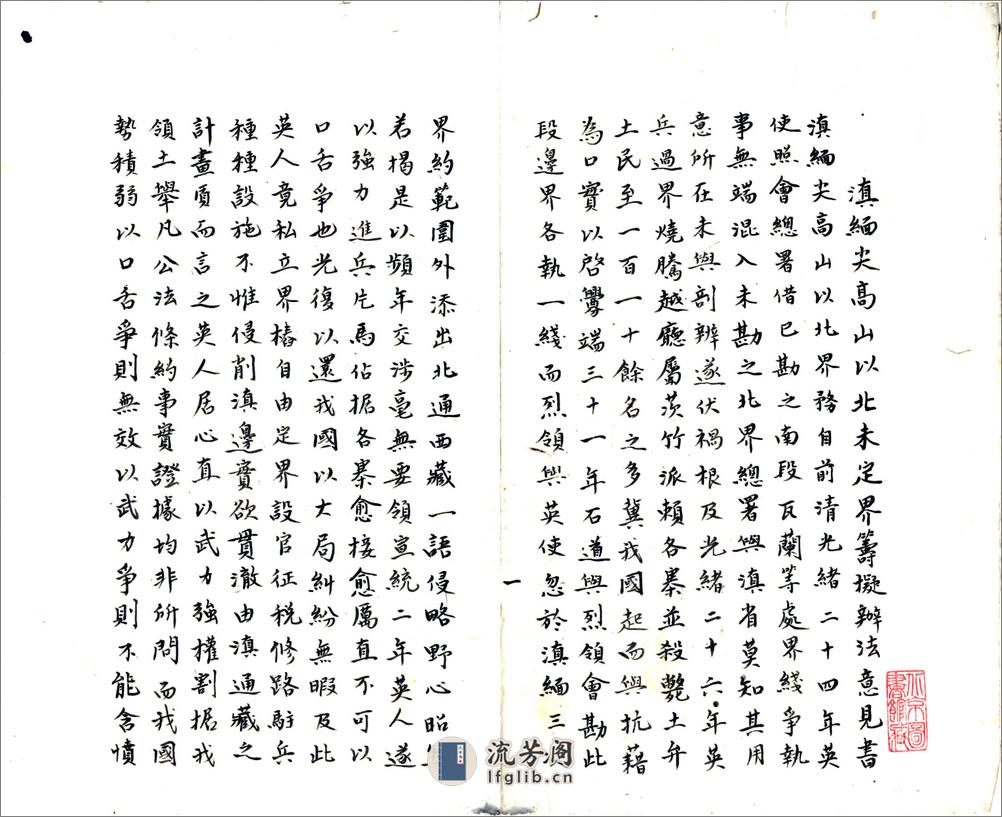 滇緬尖高山以北未定界籌擬辦法意見書
滇緬尖高山以北界務自前清光緒二十四年英
使照會總署借已勘之南段瓦蘭等處界綫爭執
事無端混入未勘之北界總署與滇省莫知其用
意所在未與剖辨遂伏禍根及光緒二十六年英
兵過界燒騰越廳屬茨竹派賴各寨並殺斃土弁
土民至一百一十餘名之多冀我國起而與抗藉
為口實以啓釁端三十一年石道與烈領會勘此
段邊界各執一綫而烈領與英使忽於滇緬三次
界約範圍外添出北通西藏一語侵略野心昭然
若揭是以頻年交涉毫無要領宣統二年英人遂
以強力進兵片馬佔据各寨愈接愈厲直不可以
口舌爭也光復以還我國以大局糾紛無暇及此
英人竟私立界樁自由定界設官征稅修路駐兵
種種設施不惟侵削滇邊實欲貫澈由滇通藏之
計畫質而言之英人居心直以武力強權割据我
領土舉凡公法條約事實證據均非所問而我國
勢積弱以口舌爭則無效以武力爭則不能含憤
一
流芳阁
lfglib.cn